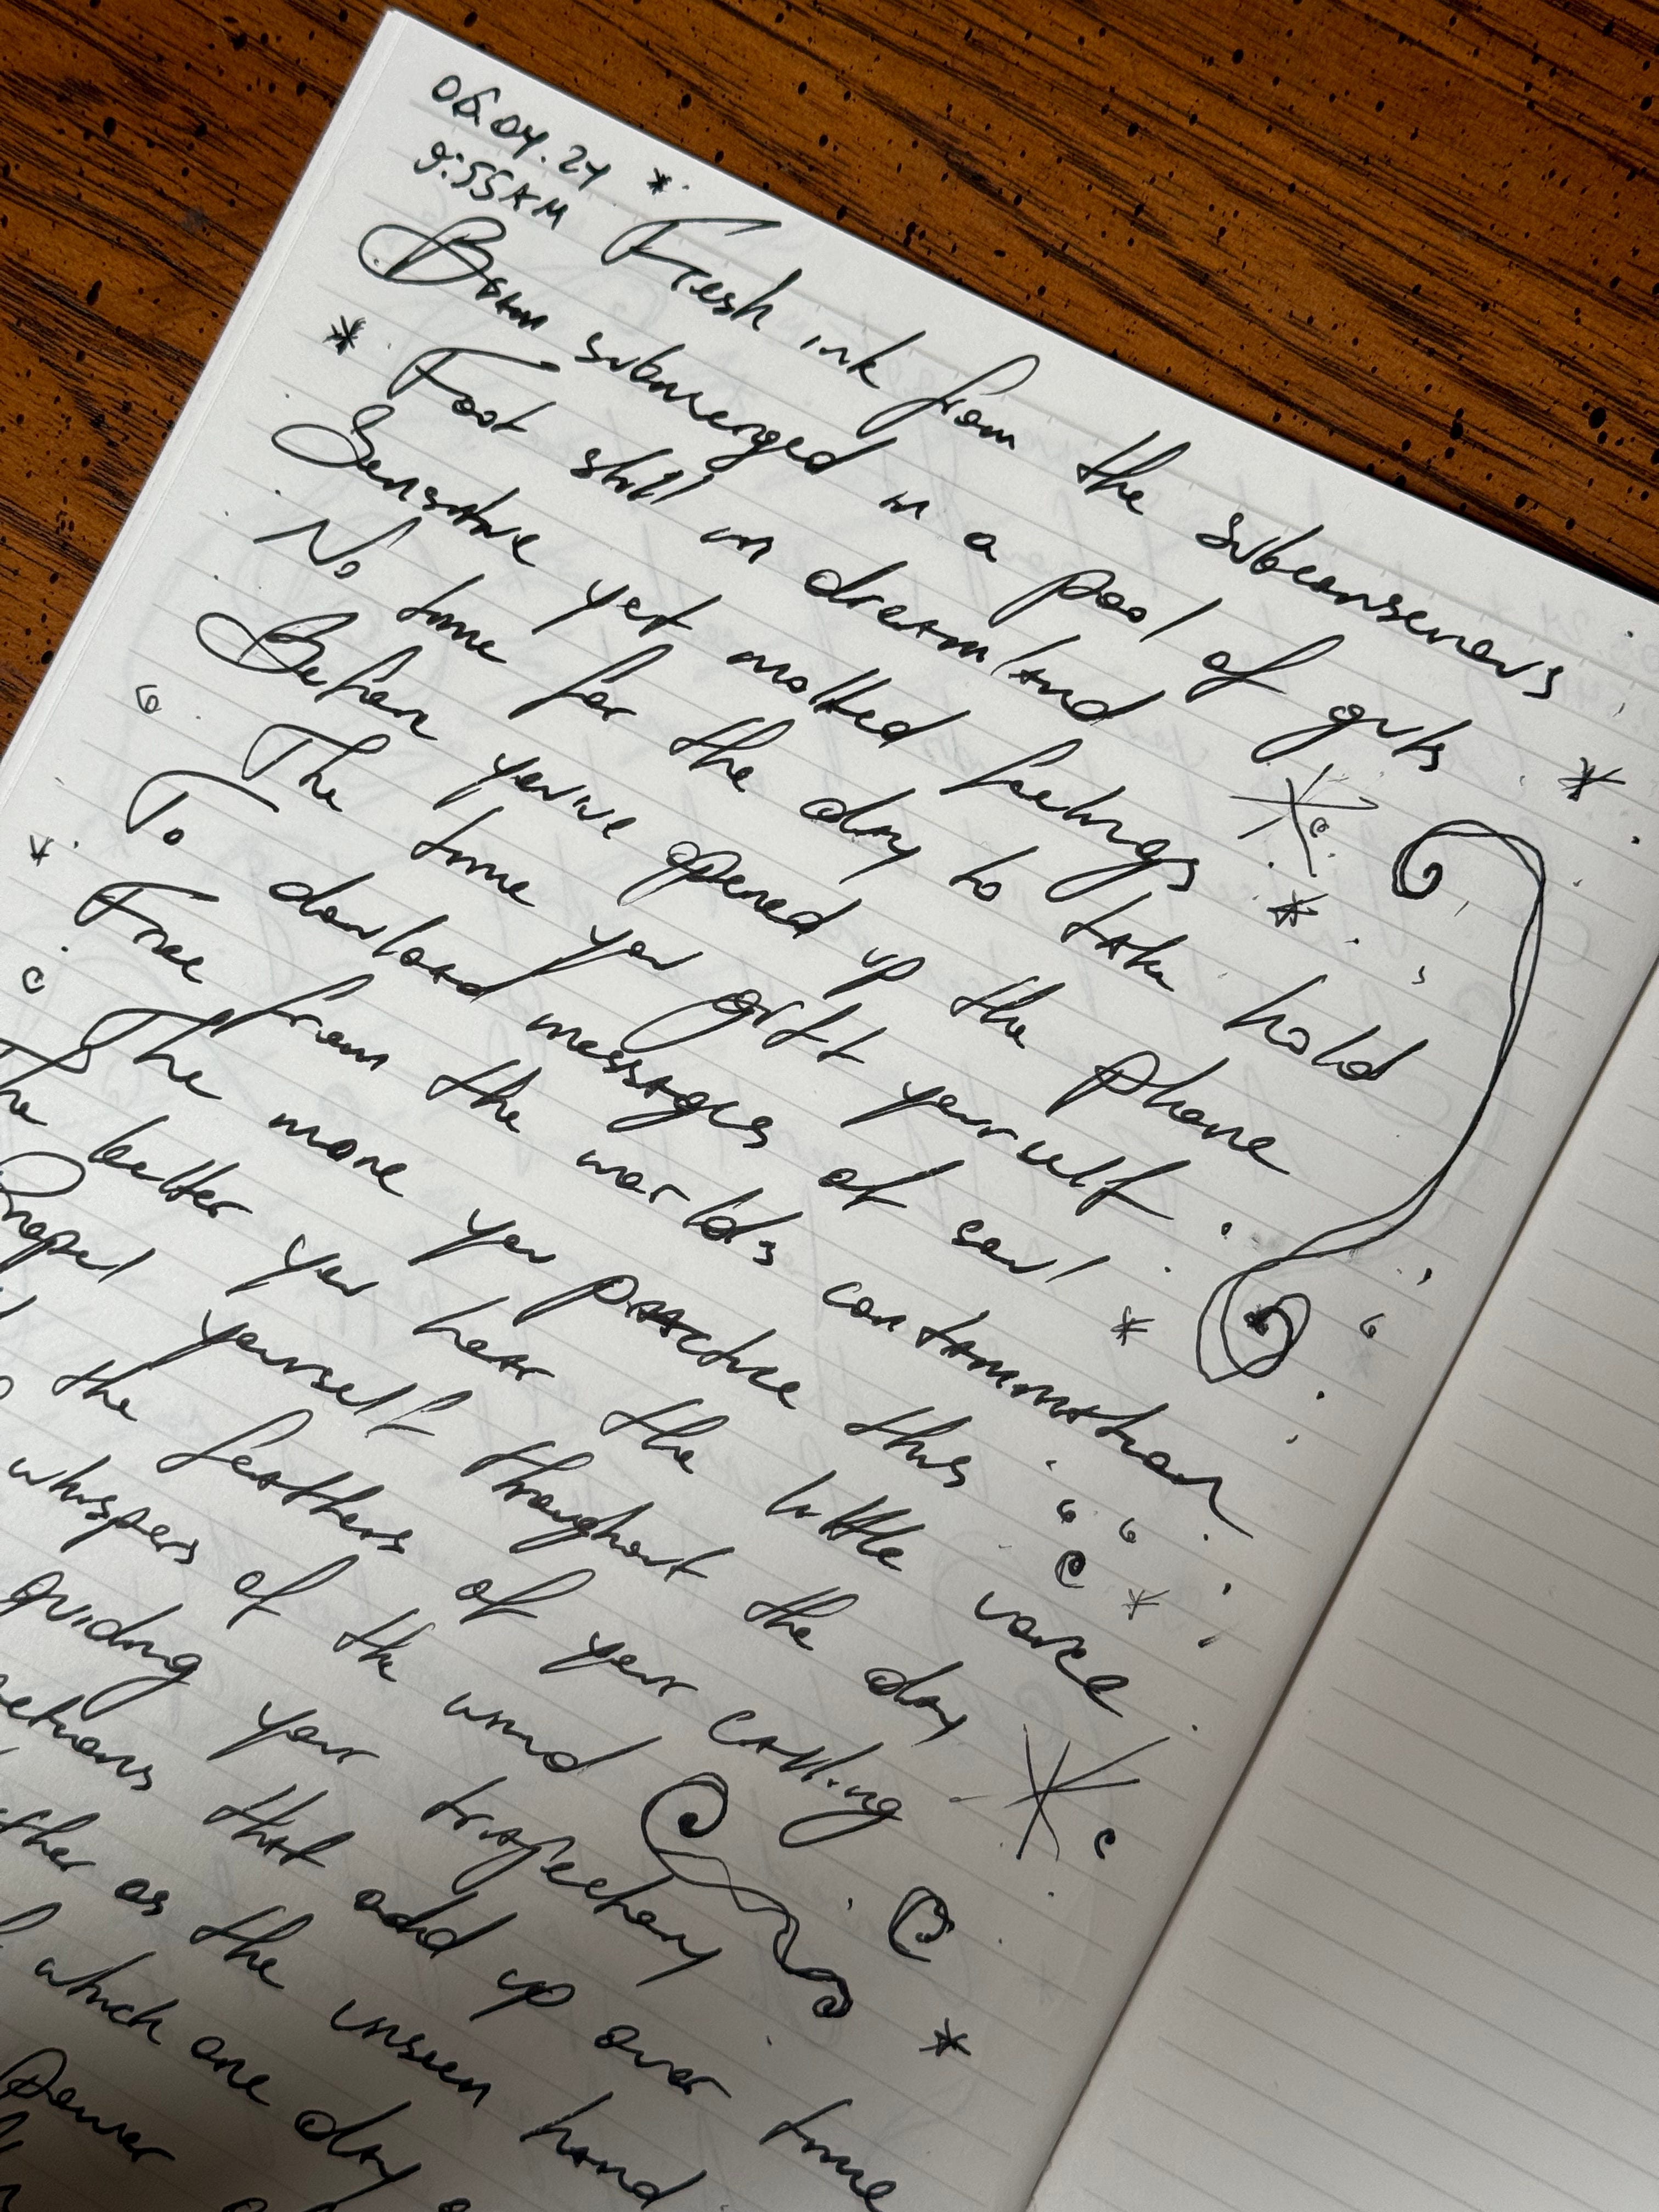 06.04.24
9:55AM
Fresh ink from the subconscious
Born submerged in a pool of guts
Foot still in dreamland
Sensitive yet molted feelings
No time for the day to take hold
Before you've opened up the phone
The time you gift yourself
To download messages of soul
Free from the worlds contamination
The more you practice this
The better you hear the little voice
Propel yourself throughout the day
the feathers of your calling
whispers of the wind
guiding your trajectory
actions that add up over time
as the unseen hand
which one day
Power